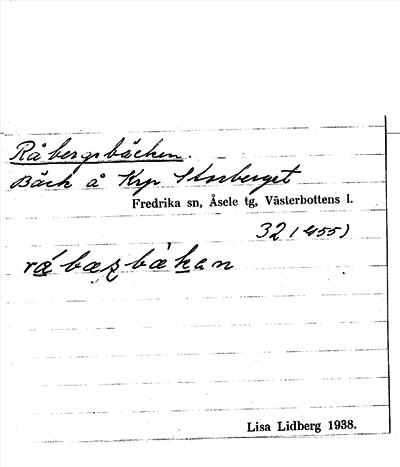 Råbergsbäcken.
Bäck å Krp Storberget
Fredrika sn, Åsele tg, Västerbottens l.
32 (455)
Lisa Lidberg 1938.